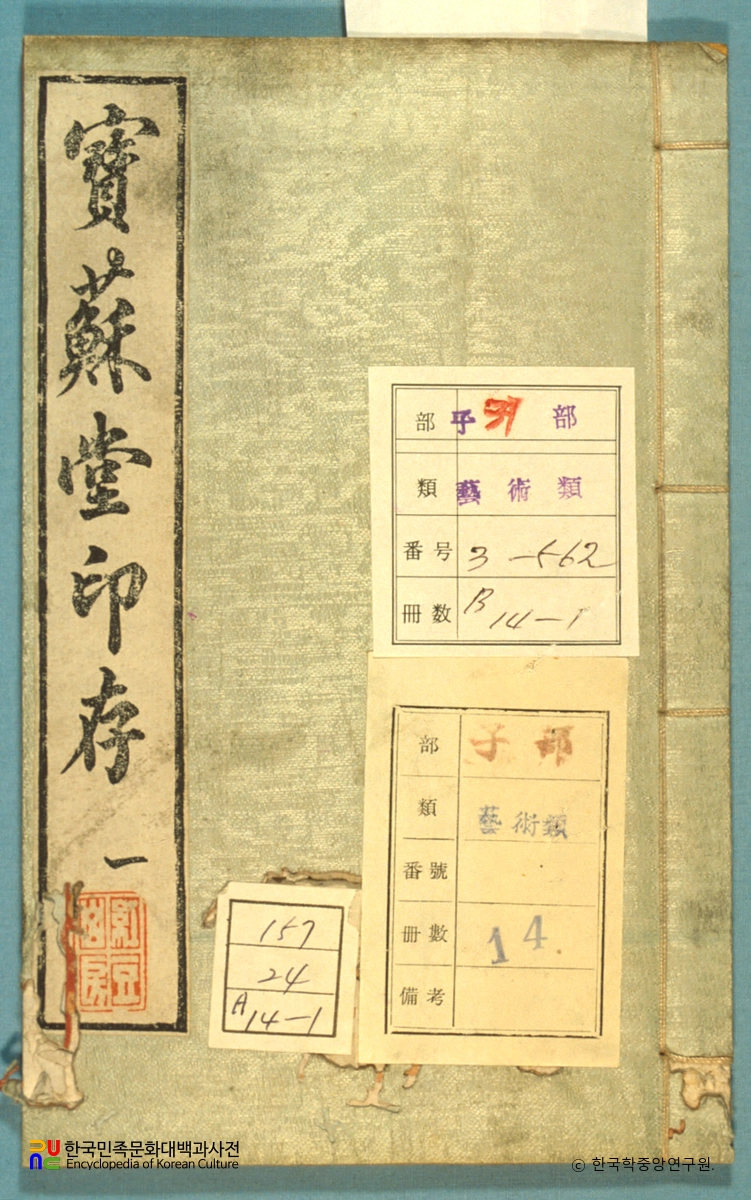 寶蘇堂印存 一
部 子 部
類 藝術類
番号 3-562
冊数 B 14-1
部 子部
類 藝術類
番號
冊數 14.
備考
157
24
A 14-1
한국민족문화대백과사전
Encyclopedia of Korean Culture
© 한국학중앙연구원.